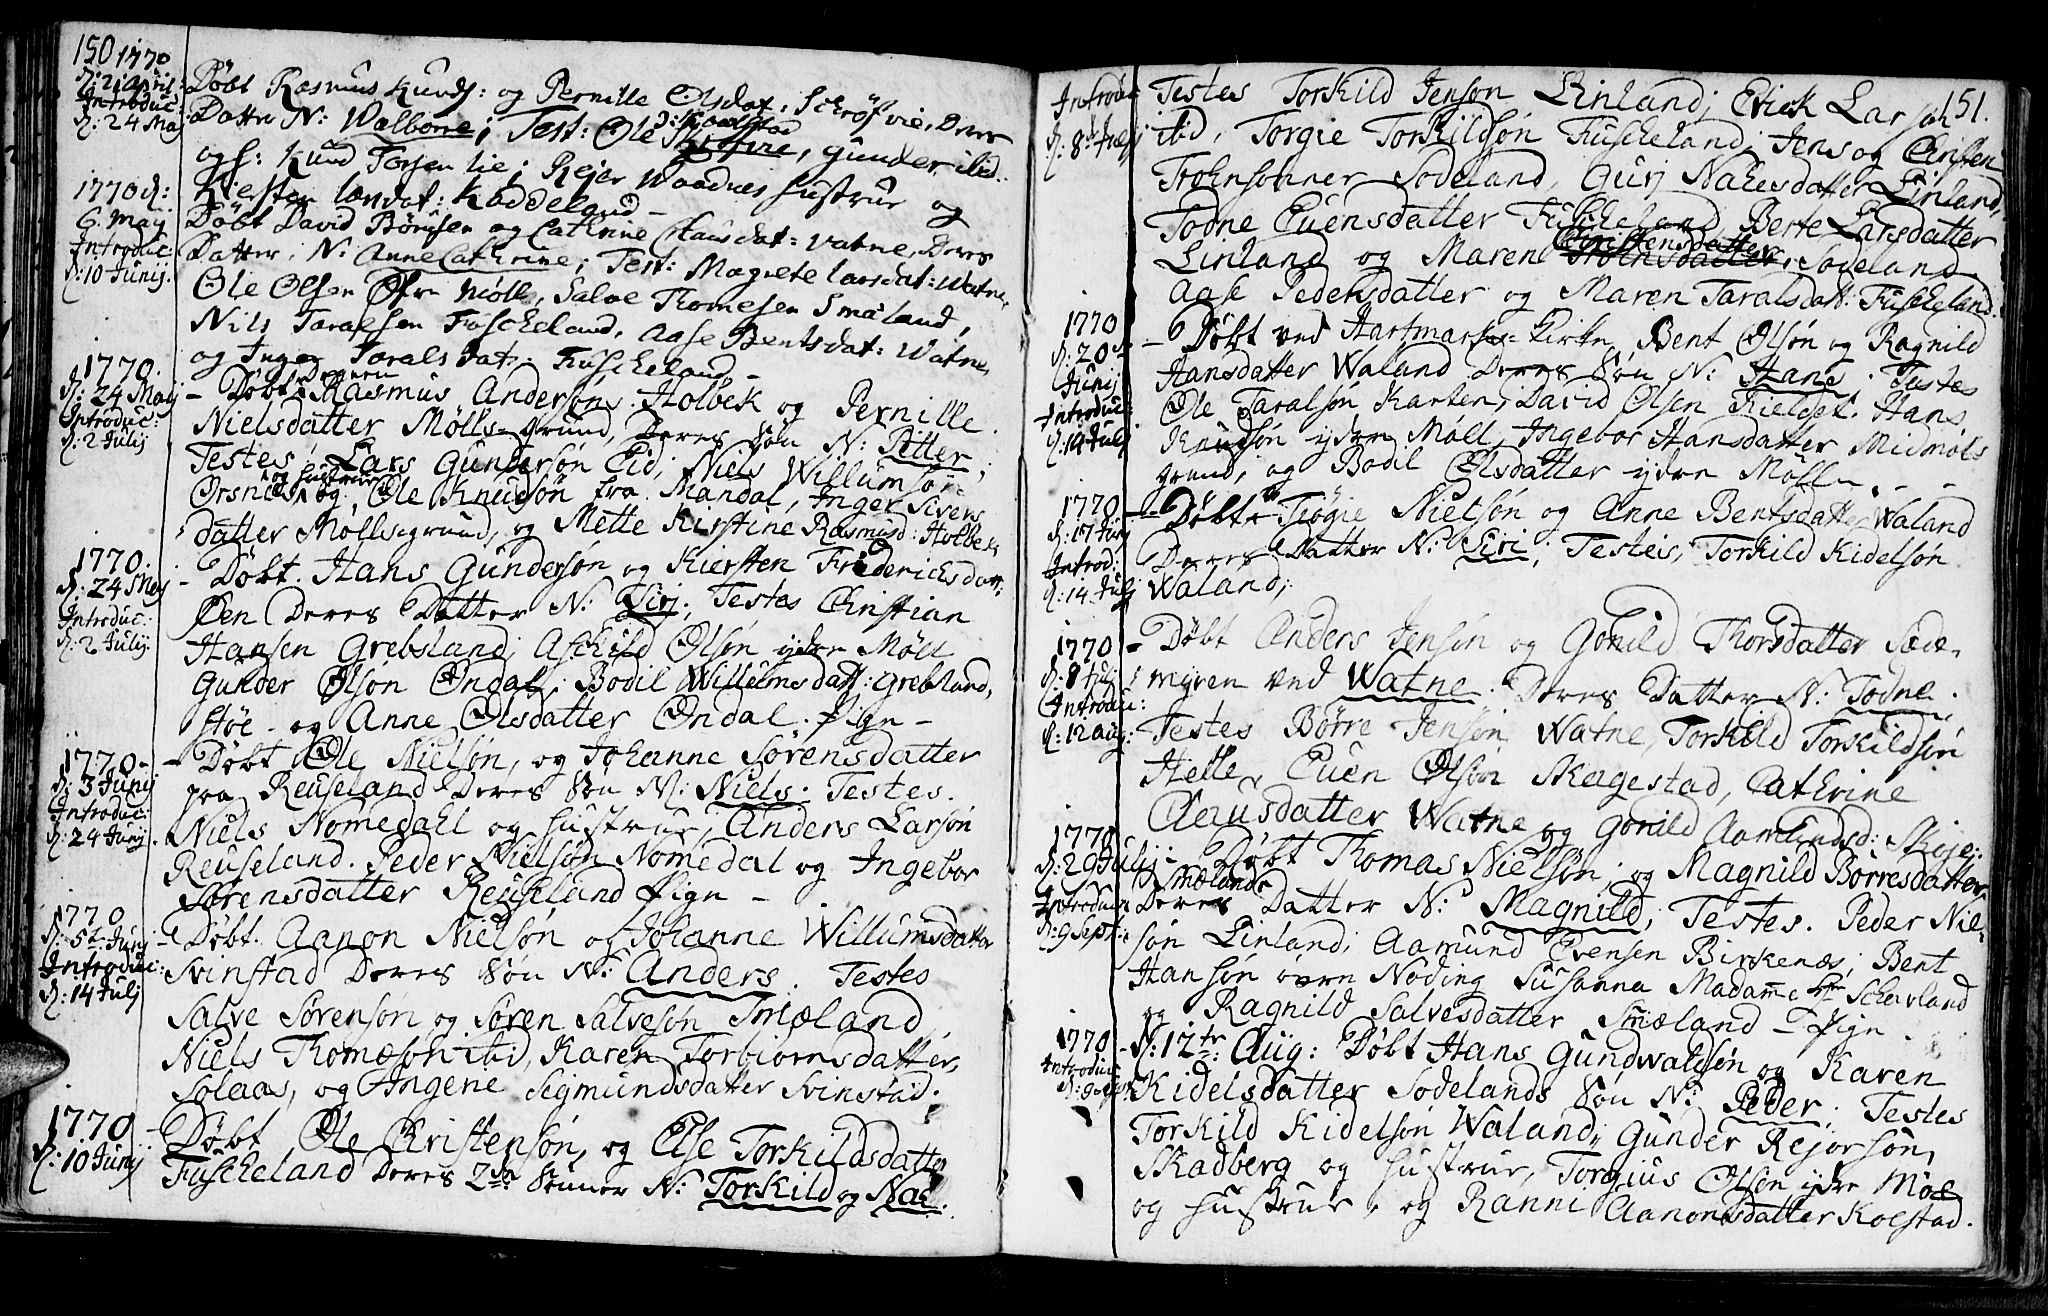 150 1770
d: 21 April:
Introduc:
d: 24 Maj
Døbt Rasmus Knuds: og Pernille Olsdat. Schrøfvie, Deres
Datter N: Walborre; Test: Ole Skrøfvie, gunder ibid.
og h: Knud Torsen Lie; Rejer Waadnes hustrue og
Kiersten landat: Kaddeland –
1770 d:
6 May
Introduc:
d: 10 Junij.
Døbt David Børusen og Cathrine Clausdat: Vatne, Deres
Datter, N: Anne Cathrine; Test: Magrete larsdat: Watne,
Ole Olsen Øfre Mølle, Salve Thomesen Smaland,
Nils Taralsen Fuscheland, Aase Bentsdat: Watne,
og Inger Taralsdat: Fuscheland –
1770.
d: 24 Maij
Introduc:
d: 2 Julij
– Døbt Degnen Rasmus Andersøns Holbek og Pernille
Nielsdatter Mølls-grund, Deres Søn N: Petter;
Testes, Lars Gundersøn Eid; Niels Willumsøn
og hustrue
Orsnes og Ole Knudsøn fra Mandal, Inger Sivers
datter Møllsegrund, og Mette Kirstine Rasmusd: Holbek
1770.
d: 24 Maj
Introduc:
d: 2 Julij.
– Døbt. Hans Gundersøn og Kiersten Friderichsdatt:
Øen Deres Datter N: Sirj; Testes Christian
Hansen Grebsland; Aschild Olsøn ydre Møll
Gunder Olsøn Øndal; Bodil Willumsdatt: Grebsland,
støe – og Anne Olsdatter Øndal. Pige –
1770 –
d: 3 Junij
Introduc:
d: 24 Junij.
– Døbt Ole Nielsøn, og Johanne Sørensdatter
paa Reuseland Deres Søn N: Niels: Testes.
Niels Nomedahl og hustrue; Anders Larsøn
Reuseland. Peder Nielsøn Nomedal og Ingebor
Sørensdatter Reuseland Pige –
1770
d: 5t Junij
Introduc:
d: 14 Julj
– Døbt. Aanon Nielsøn og Johanne Willumsdatter
Svinstad Deres Søn N: Anders. Testes
Salve Sørensøn og Søren Salvesøn Smæland
Niels Thomæson ibid, Karen Torbiørnsdatter,
Solaas, og Angene Segmundsdatter Svinstad.
1770
d: 10 Junij
– Døbt Ole Christensøn, og Else Torkildsdatter
Fuscheland Deres 2de Sønner N: Torkild og
151.
Introduc
d: 8de Julj
Testes Torkild Jensøn Linland; Erick Larsøn
ibid, Torgie Torkildsøn Fuscheland; Jens og Christen
Trohnsønner Sodeland, Gurj Nahesdatter Linland,
Todne Euensdatter Fuscheland Berte Larsdatter
Christensdatter
Linland og Maren Trohnsdatter Sodeland
Aase Pedersdatter og Maren Taralsdatt: Fuscheland.
1770
d: 20de
Junij
Introduc:
d: 14 Julj
– Døbt ved Hartmarks-Kirke Bent Olsøn og Ragnild
Hansdatter Waland Deres Søn N: Hans. Testes
Ole Taralsøn Karten, David Olsen Hans
Knudsøn ydre Møll, Ingebor Hansdatter Midmøls
grund, og Bodil Olsdatter ydre Mølle. – –
1770 –
d: 17 Junj
Introd:
d: 14 Julj
– Døbt Tiøgie Nielsøn og Anne Bentsdatter Waland
Deres Datter N: Siri; Testeis, Torkild Kidelsøn
Waland;
1770 –
d: 8 Julj
Introduc:
d: 12 Aug:
– Døbt Anders Jensøn og Gonild Thorsdatter
myren ved Watne. Deres Datter N: Todne.
Testes Børre Jensøn Watne, Torkild Torkildsøn
Helle, Euen Olsøn Skagestad, Cathrine
Clausdatter Watne og Gonild Aamundsd: Skeje:
1770
d: 29 Julij
Introduc
d: 9 Septr:
– Døbt Thomas Nielsøn, og Magnild Børresdatter
Smælands
Deres Datter N: Magnild; Testes. Peder Niel-
søn Linland; Aamund Evensen Birkenæs; Bent
Hansøn øvre Nøding Susanna Madamme Schavland
og Ragnild Salvesdatter Smæland – Pige
1770 –
Introduc
d: 9 Sept
d: 12te Aug: Døbt Hans Gundwaldsøn og Karen
Kidelsdatter Sodelands Søn N: Peder; Testes
Torkild Kidelsøn Waland; Gunder Rejersøn
Skadberg og hustrue, Torgius Olsen ydre Møll
og hustrue, og Ranni Aanonsdatter Kolstad.